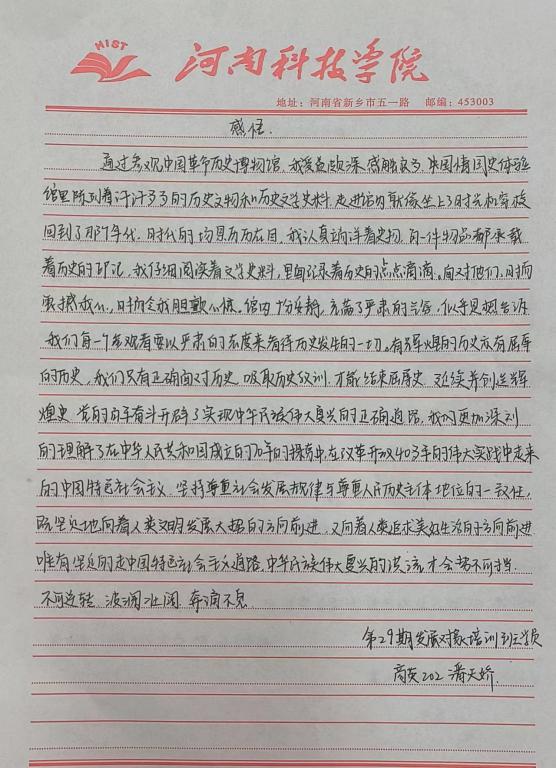 HIST
河南科技学院
地址：河南省新乡市五一路 邮编：453003
感悟.
通过参观中国革命历史博物馆，我受益颇深，感触良多，中国情国史体验
馆里陈列着许许多多的历史文物和历史文学史料，走进馆内就像坐上了时光机穿梭
回到了那个年代，时代的场景历历在目，我认真端详着史物，每一件物品都承载
着历史的印记，我仔细阅读着文学史料，里面记录着历史的点点滴滴。面对他们，时而
震撼我心，时而令我胆颤心惊，馆内十分安静，充满了严肃的气氛，似乎是想告诉
我们每一个参观者要以严肃的态度来看待历史发生的一切。有辉煌的历史亦有屈辱
的历史，我们只有正确面对历史，吸取历史教训，才能结束屈辱史，延续并创造辉
煌史，党的百年奋斗开辟了实现中华民族伟大复兴的正确道路，我们更加深刻
的理解了在中华人民共和国成立的70年的探索中，在改革开放40多年的伟大实践中走来
的中国特色社会主义，坚持尊重社会发展规律与尊重人民历史主体地位的一致性，
既坚定地向着人类文明发展大趋的方向前进，又向着人类追求美好生活的方向前进
唯有坚定的走中国特色社会主义道路，中华民族伟大复兴的洪流才会势不可挡、
不可逆转、波澜壮阔、奔涌不息
第29期发展对象培训班学员
商英202 潘天娇